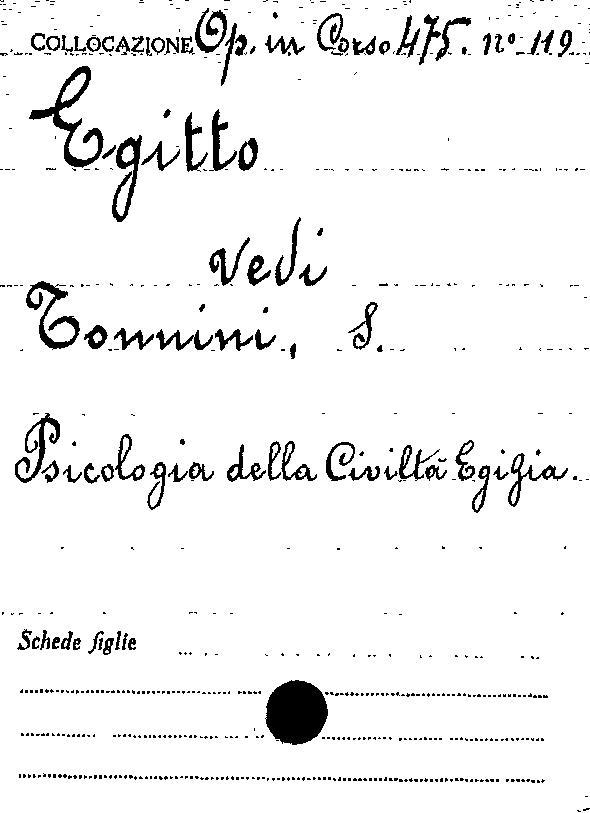 COLLOCAZIONE Op. in Corso 475. nº 119
Egitto
vedi
Tonnini, S.
Psicologia della Civiltà Egizia.
Schede figlie